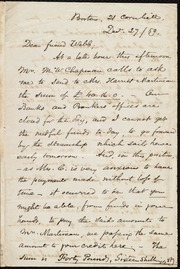 Boston, 21 Cornhill,
Dec. 27/59.
Dear friend Webb,
At a late hour this afternoon
Mrs. M. W. Chapman calls to ask
me to send to Miss Harriet Martineau
the sum of £40. Our
Banks and Brokers' offices are
closed for the day, and I cannot get
the needful funds to-day, to go forward
by the steamship which sails hence
early tomorrow. And, in this position,
as Mrs. C. is very anxious to have
the payment made without loss of
time, it occurred to me that you
might be able, from funds in your
hands, to pay the said amount to
Miss Martineau, we passing the same
amount to your credit here. The
sum is Forty Pounds, Sixteen Shillings